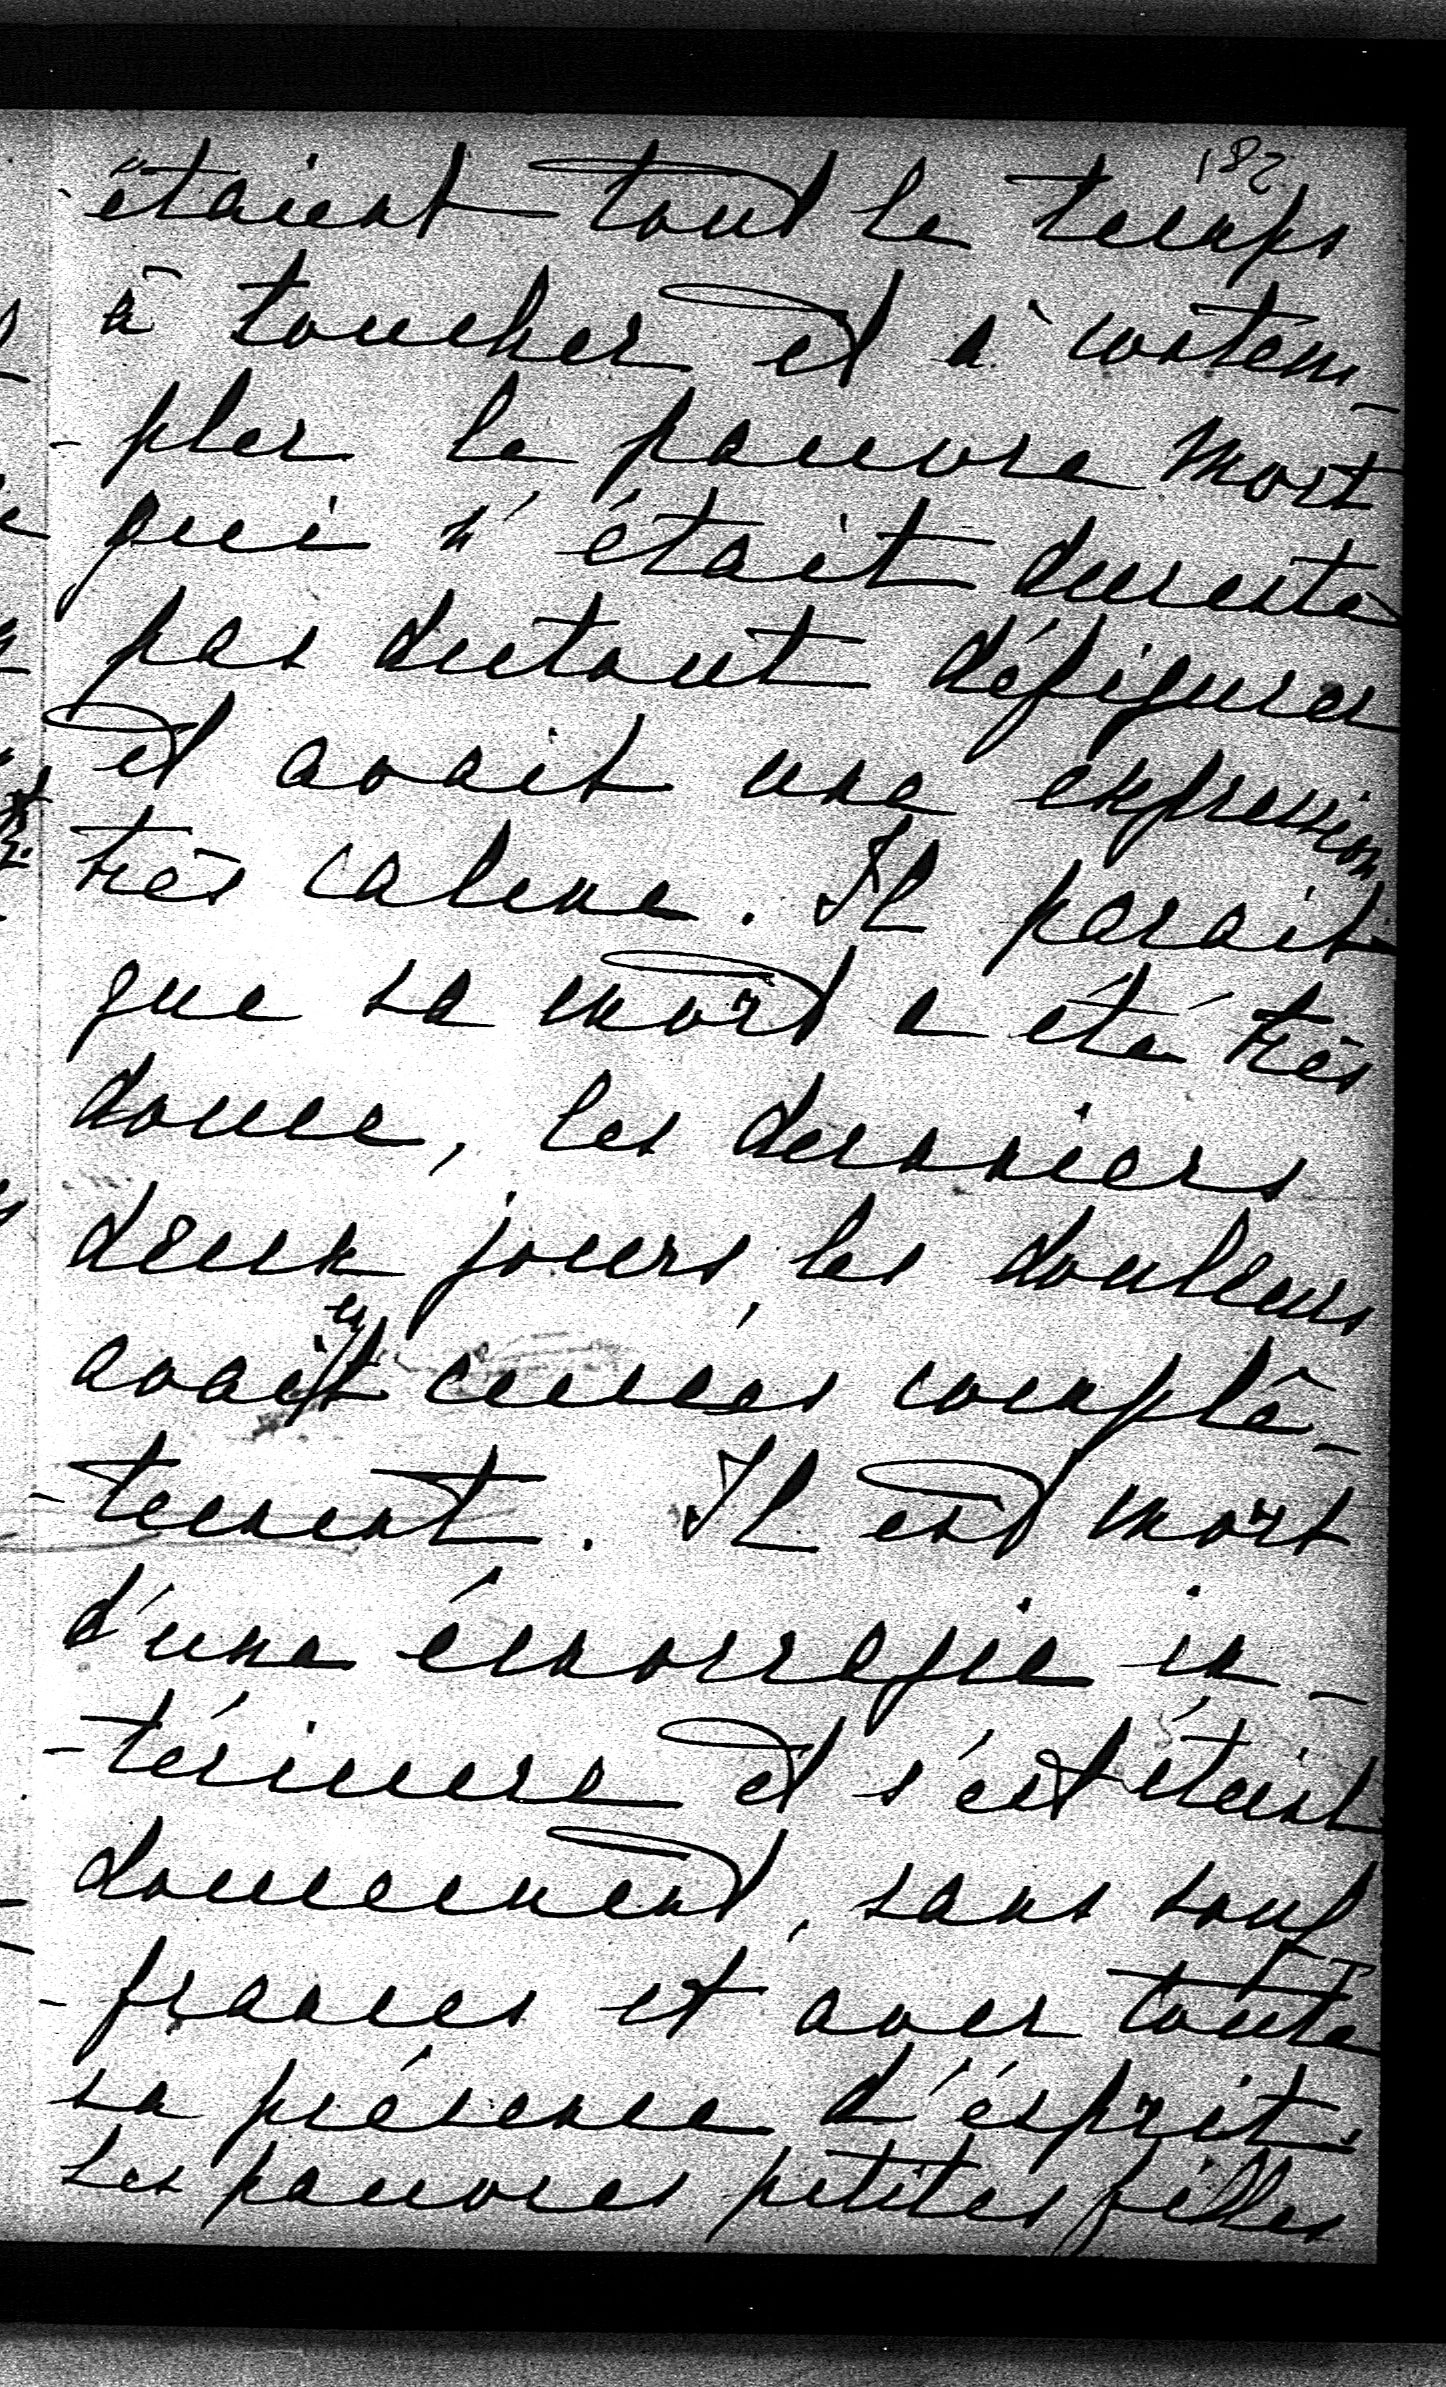 182
étaient tout le temps
à toucher et à contem-
-pler le pauvre mort
qui n'était dureste
pas dutout défigurer
et avait une expression
très calme. Il parait
que sa mort a été très
douce, les derniers
deux jours les douleurs
avaient cessées complè-
-tement. Il est mort
d'une émorragie in-
-térieure et s'est éteint
doucement, sans souf-
-frances et avec toute
sa présence d'ésprit.
Les pauvres petites filles